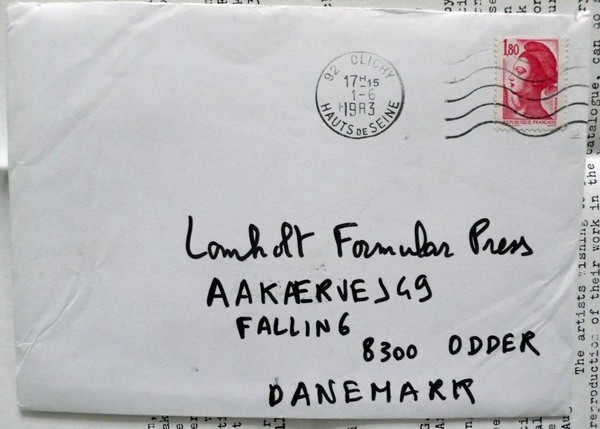 92 CLICHY
17H15
1-6
1983
HAUTS DE SEINE
1,80
REPUBLIQUE FRANCAISE
Lomholt Formular Press
AAKÆRVEJ 49
FALLING
8300 ODDER
DANEMARK
The artists wishing to
reproduction of their work in the catalogue, can do